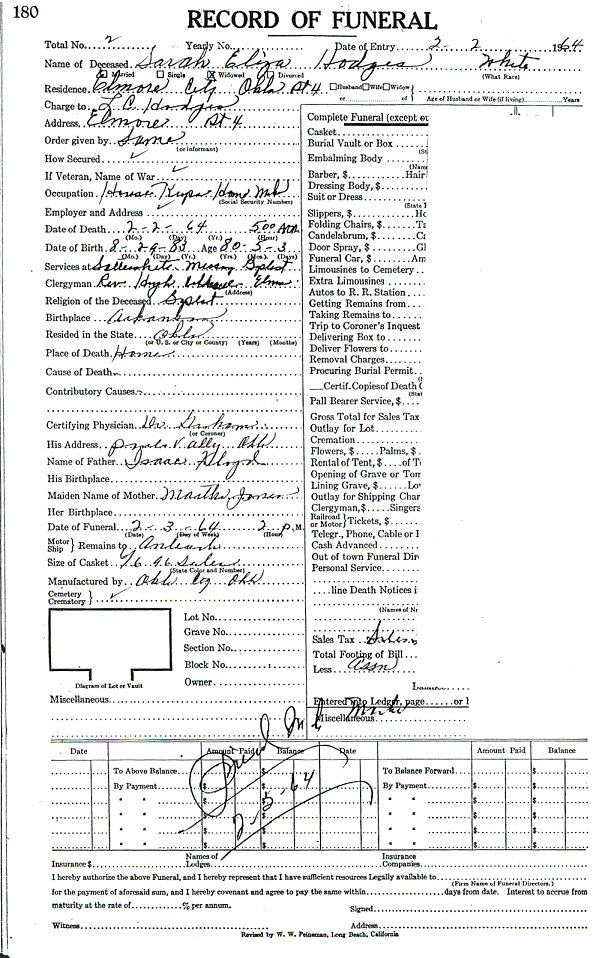 180
RECORD OF FUNERAL
Total No. 2 Yearly No. Date of Entry 2 - 2 1964
Name of Deceased Sarah Eliza Hodges White
Married Single X Widowed Divorced (What Race)
Residence Elmore City Okla Rt 4 Husband Wife Widow
or of Age of Husband or Wife (if living) Years
Charge to L.C. Hodges
Address Elmore Rt 4
Order given by Same
(or informant)
How Secured
If Veteran, Name of War
Occupation House Keeper
(Social Security Number)
Employer and Address
Date of Death 2 - 2 - 64 5:00 AM
(Mo.) (Day) (Yr.) (Hour)
Date of Birth 8 - 29 - 83 Age 80 - 5 - 3
(Mo.) (Day) (Yr.) (Yrs.) (Mos.) (Days)
Services at
Clergyman Rev. Hugh
(Address)
Religion of the Deceased Bptist
Birthplace Arkansas
Resided in the State Okla
(or U. S. or City or County) (Years) (Months)
Place of Death Home
Cause of Death
Contributory Causes
Certifying Physician Dr. Graham
(or Coroner)
His Address Pauls Vally Okla
Name of Father Isaac Floyd
His Birthplace
Maiden Name of Mother Martha Jones
Her Birthplace
Date of Funeral 2 - 3 - 64 2 P. M.
(Date) (Day of Week) (Hour)
Motor Ship } Remains to Antioch
Size of Casket
(State Color and Number)
Manufactured by Okla Okla
Cemetery
Crematory }
Lot No.
Grave No.
Section No.
Block No.
Owner
Diagram of Lot or Vault
Miscellaneous
Complete Funeral (except ou
Casket
Burial Vault or Box
(St
Embalming Body
(Name
Barber, $ Hair
Dressing Body, $
Suit or Dress
(State
Slippers, $ Ho
Folding Chairs, $ Ta
Candelabrum, $ Ca
Door Spray, $ Gl
Funeral Car, $ Am
Limousines to Cemetery
Extra Limousines
Autos to R. R. Station
Getting Remains from
Taking Remains to
Trip to Coroner's Inquest
Delivering Box to
Deliver Flowers to
Removal Charges
Procuring Burial Permit
Certif. Copies of Death
(Stat
Pall Bearer Service, $
Gross Total for Sales Tax
Outlay for Lot
Cremation
Flowers, $ Palms, $
Rental of Tent, $ of T
Opening of Grave or Tom
Lining Grave, $ Lo
Outlay for Shipping Char
Clergyman, $ Singers
Railroad or Motor } Tickets, $
Telegr., Phone, Cable or
Cash Advanced
Out of town Funeral Dir
Personal Service
line Death Notices i
(Names of Ne
Sales Tax
Total Footing of Bill
Less Assn
Entered into Ledger, page or
Miscellaneous
Date Amount Paid Balance Date Amount Paid Balance
To Above Balance $ To Balance Forward $
By Payment $ $ By Payment $ $
" " $ $ " " $ $
" " $ $ " " $ $
" " $ $ " " $ $
" " $ $ " " $ $
2-5-64
Insurance $ Names of Lodges Insurance Companies
I hereby authorize the above Funeral, and I hereby represent that I have sufficient resources Legally available to
(Firm Name of Funeral Directors.)
for the payment of aforesaid sum, and I hereby covenant and agree to pay the same within days from date. Interest to accrue from
maturity at the rate of % per annum.
Signed
Witness Address
Revised by W. W. Feineman, Long Beach, California